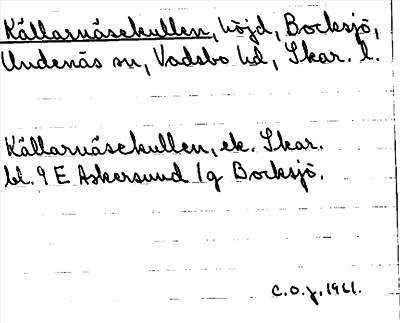 Källarnäsekullen, höjd, Bocksjö,
Undenäs sn, Vadsbo hd, Skar. l.
Källarnäsekullen, ek. Skar.
bl. 9 E Askersund 1g Bocksjö.
C.O.J. 1961.